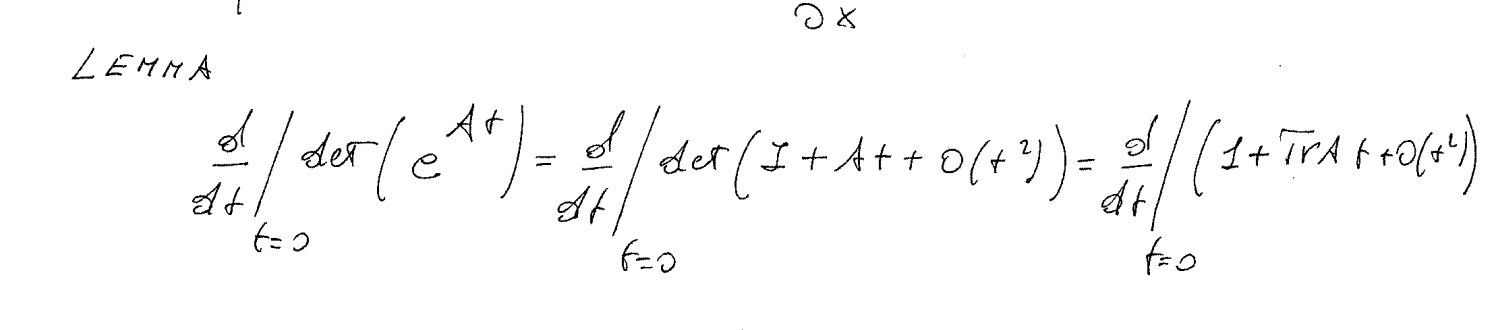 ∂x
LEMMA
d/dt|_{t=0} det(e^{At}) = d/dt|_{t=0} det(I + At + O(t²)) = d/dt|_{t=0} (1 + TrA t + O(t²))